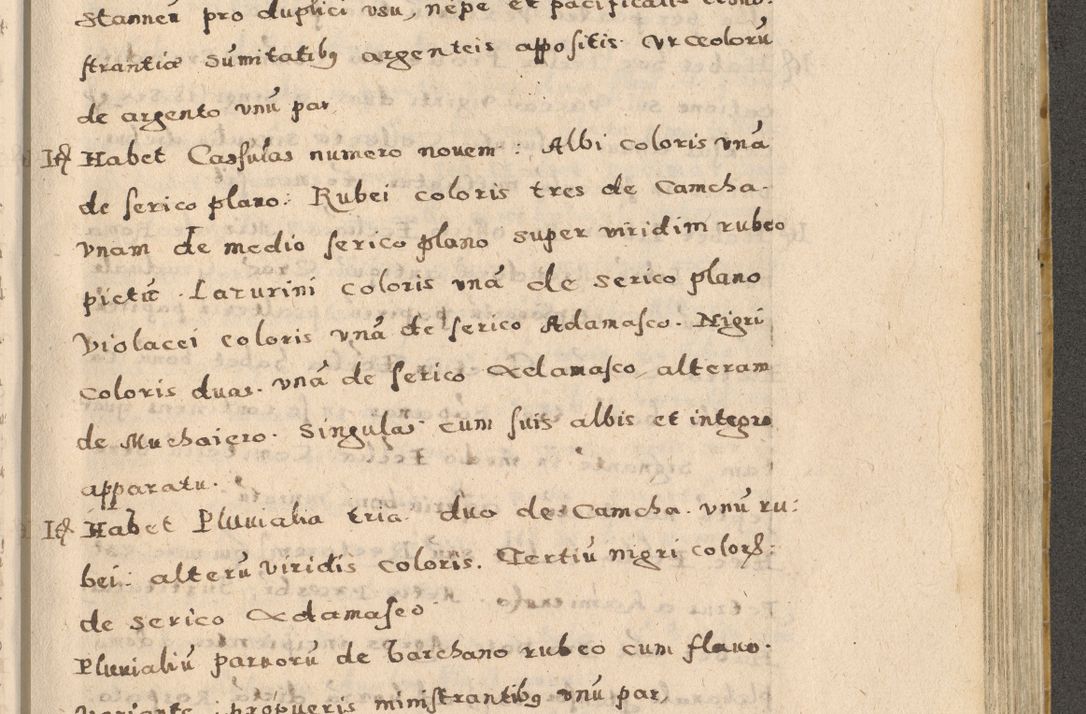 Stanneū pro duplici vsu, nēpe et pacificalis
strantiæ sūmitatibꝫ argenteis appositis. Vrceolorū
de argento vnū par
Itꝫ Habet Cassulas numero novem: Albi coloris vnā
de serico plano: Rubei coloris tres de Camcha.
vnam de medio serico plano super viridim rubeo
pictū. Lazurini coloris vnā de serico plano
Violacei coloris vnā de serico Adamasco. Nigri
Coloris duas. vnā de serico Adamasco, alteram
de Muchaiero. Singulas cum suis albis et integro
apparatu.
Itꝫ Habet Pluuialia tria. duo de Camcha. vnū ru:
bei: alterū viridis coloris. Tertiū nigri coloris:
de serico Adamasco
Pluuialiū paruorū de barchano rubeo cum flauo.
pro pueris ministrantibꝫ vnū par